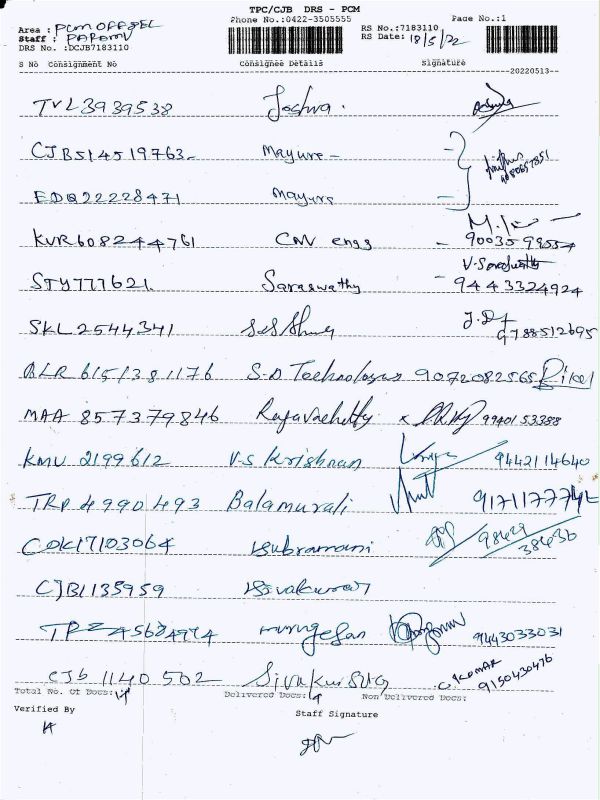 TPC/CJB DRS - PCM
Phone No.:0422-3505555 Page No.:1
Area : PCM OFFICE
RS No.:7183110
Staff :
RS Date: 18/5/22
DRS No. :DCJB7183110
S No Consignment No Consignee Details Signature
20220513
TVL3939538 Joshwa.
CJB514519763 Mayura
EDQ22228471 Mayura
KVR608244761 CNV engg
STY777621 Saraswathy 9443324924
V. Saraswathy
SKL2544341 9788512695
BLR 615138 1176 S.D. Technologys 9072082565
MAA 857379846 99401 53388
KMU 2199612 V.S Krishnan 9442114640
TRP 4990493 Balamurali
COK17103064 Subramani 98429 38436
CJB1135959 Sivakumar
murugesan 9443033031
CJB 1140 502 Sivakumar C. KUMAR 9150430476
Total No. Of Docs: 14 Delivered Docs: 14 Non Delivered Docs:
Verified By Staff Signature